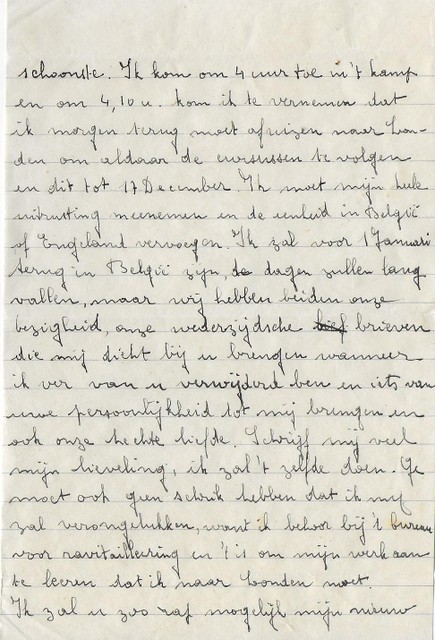 schoonste. Ik kom om 4 uur toe in 't kamp
en om 4,10 u. kom ik te vernemen dat
ik morgen terug moet afreizen naar Lon-
den om aldaar de cursussen te volgen
en dit tot 17 December. Ik moet mijn hele
uitrusting meenemen en de eenheid in België
of Engeland vervoegen. Ik zal voor 1 Januari
terug in België zijn, de dagen zullen lang
vallen, maar wij hebben beiden onze
bezigheid, onze wederzijdsche brieven
die mij dicht bij u brengen wanneer
ik ver van u verwijderd ben en iets van
uwe persoonlijkheid tot mij brengen en
ook onze hechte liefde. Schrijf mij veel
mijn lieveling, ik zal 't zelfde doen. Ge
moet ook geen schrik hebben dat ik mij
zal verongelukken, want ik behoor bij 't bureau
voor ravitailleering en 't is om mijn werk aan
te leeren dat ik naar Londen moet.
Ik zal u zoo rap mogelijk mijn nieuw